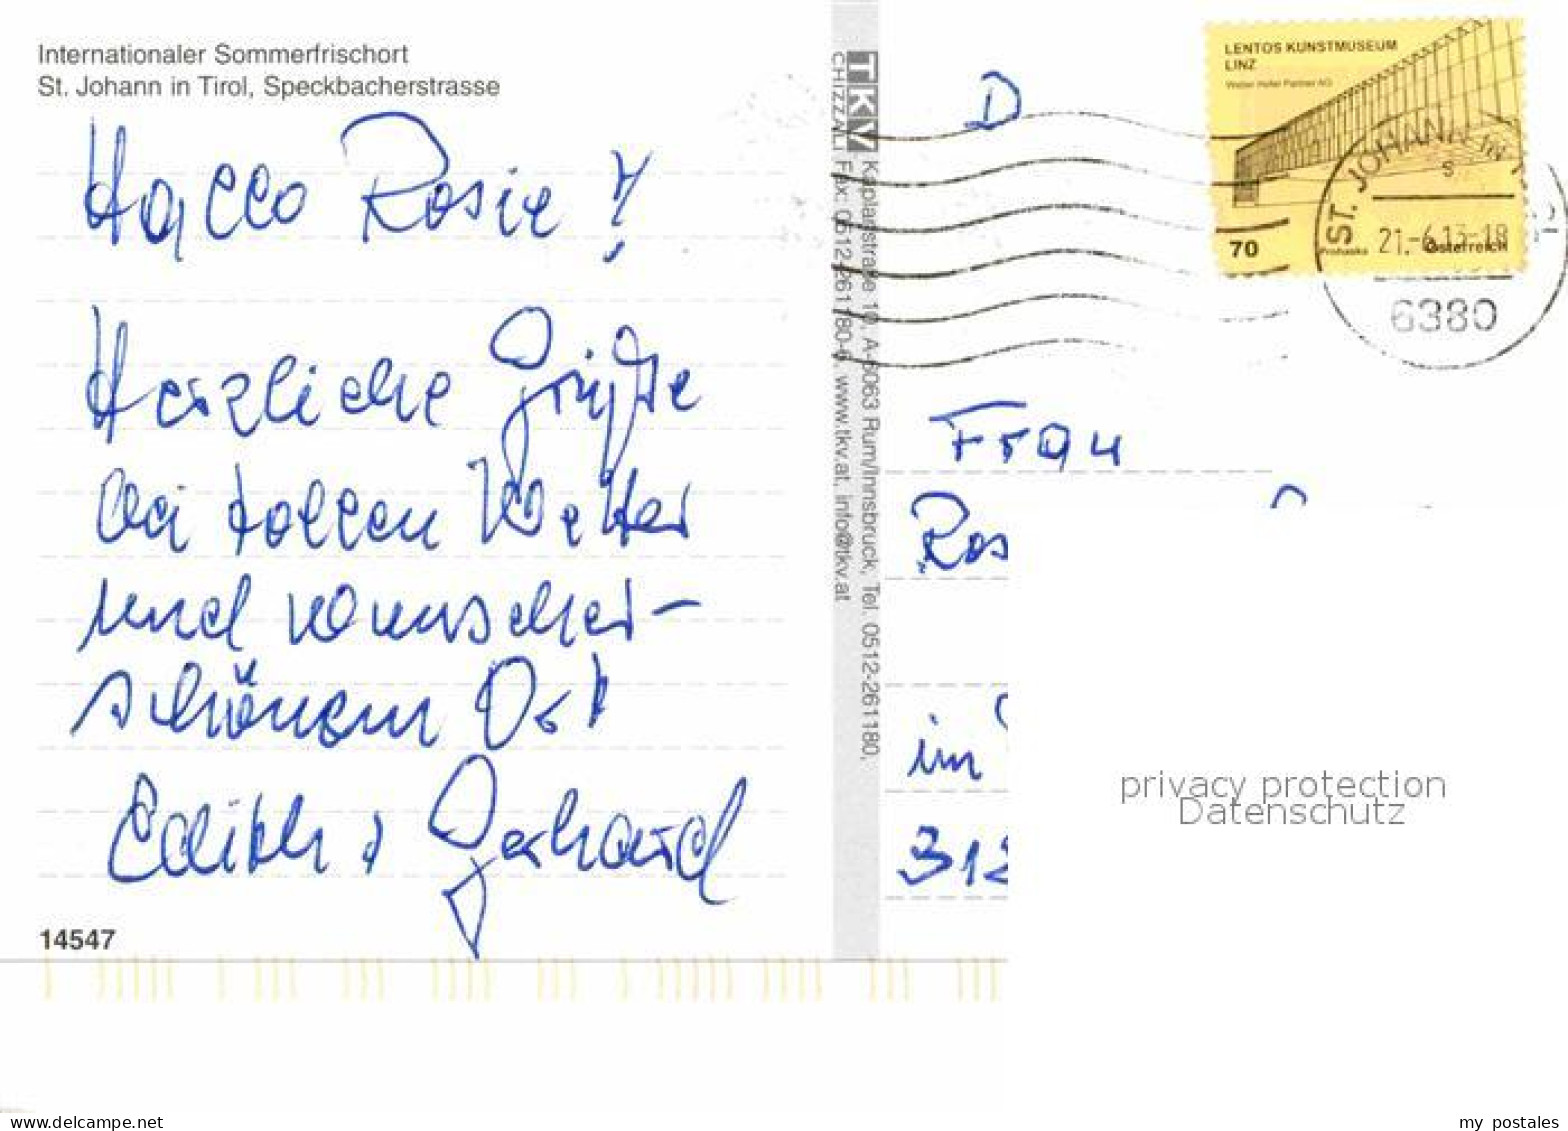 Internationaler Sommerfrischort
St. Johann in Tirol, Speckbacherstrasse
Hallo Rosie!
Herzliche Grüße
bei tollen Wetter
und wunscher-
schönem Ort
Edith + Gerhard
14547
TKV
CHIZZALI
Kaplanstraße 10, A-6063 Rum/Innsbruck, Tel. 0512-261180,
Fax: 0512-261180-6, www.tkv.at, info@tkv.at
D
LENTOS KUNSTMUSEUM
LINZ
Weber Hofer Partner AG
70
Prohaska
Österreich
ST. JOHANN IN
S
21.-6.13-18
6380
Frau
Ros
im
313
privacy protection
Datenschutz
www.delcampe.net
my_postales